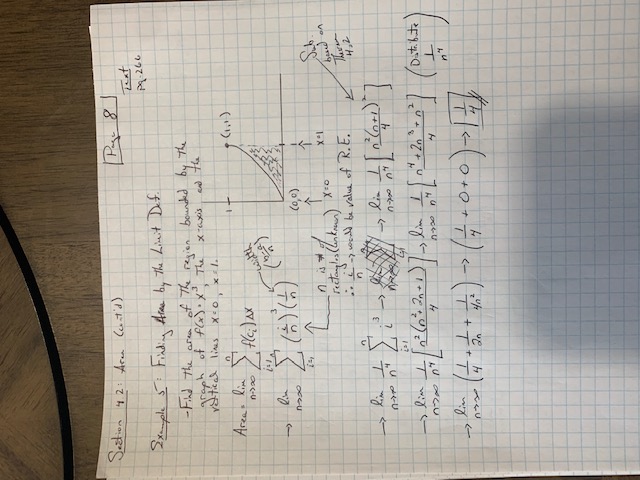 Section 4.2: Area (cont'd)
Page 8
Text
pg. 266
Example 5: Finding Area by the Limit Def.
- Find the area of the region bounded by the
graph of f(x) = x³, the x-axis and the
vertical lines x=0, x=1.
1
(1,1)
(0,0)
x=0
x=1
Area = lim n→∞ n Σ i=1 f(ci)Δx
→ lim n→∞ n Σ i=1 (i/n)³ (1/n)
width
n is # of
rectangles (unknown)
∴ i/n → would be value of R.E.
Sub.
based on
Theorem
4.2
→ lim n→∞ 1/n⁴ n Σ i=1 i³ → lim n→∞ 1/n⁴ [n²(n+1)²/4]
→ lim n→∞ 1/n⁴ [n²(n²+2n+1)/4] → lim n→∞ 1/n⁴ [n⁴+2n³+n²/4] (Distribute 1/n⁴)
→ lim n→∞ (1/4 + 1/2n + 1/4n²) → (1/4 + 0 + 0) → 1/4